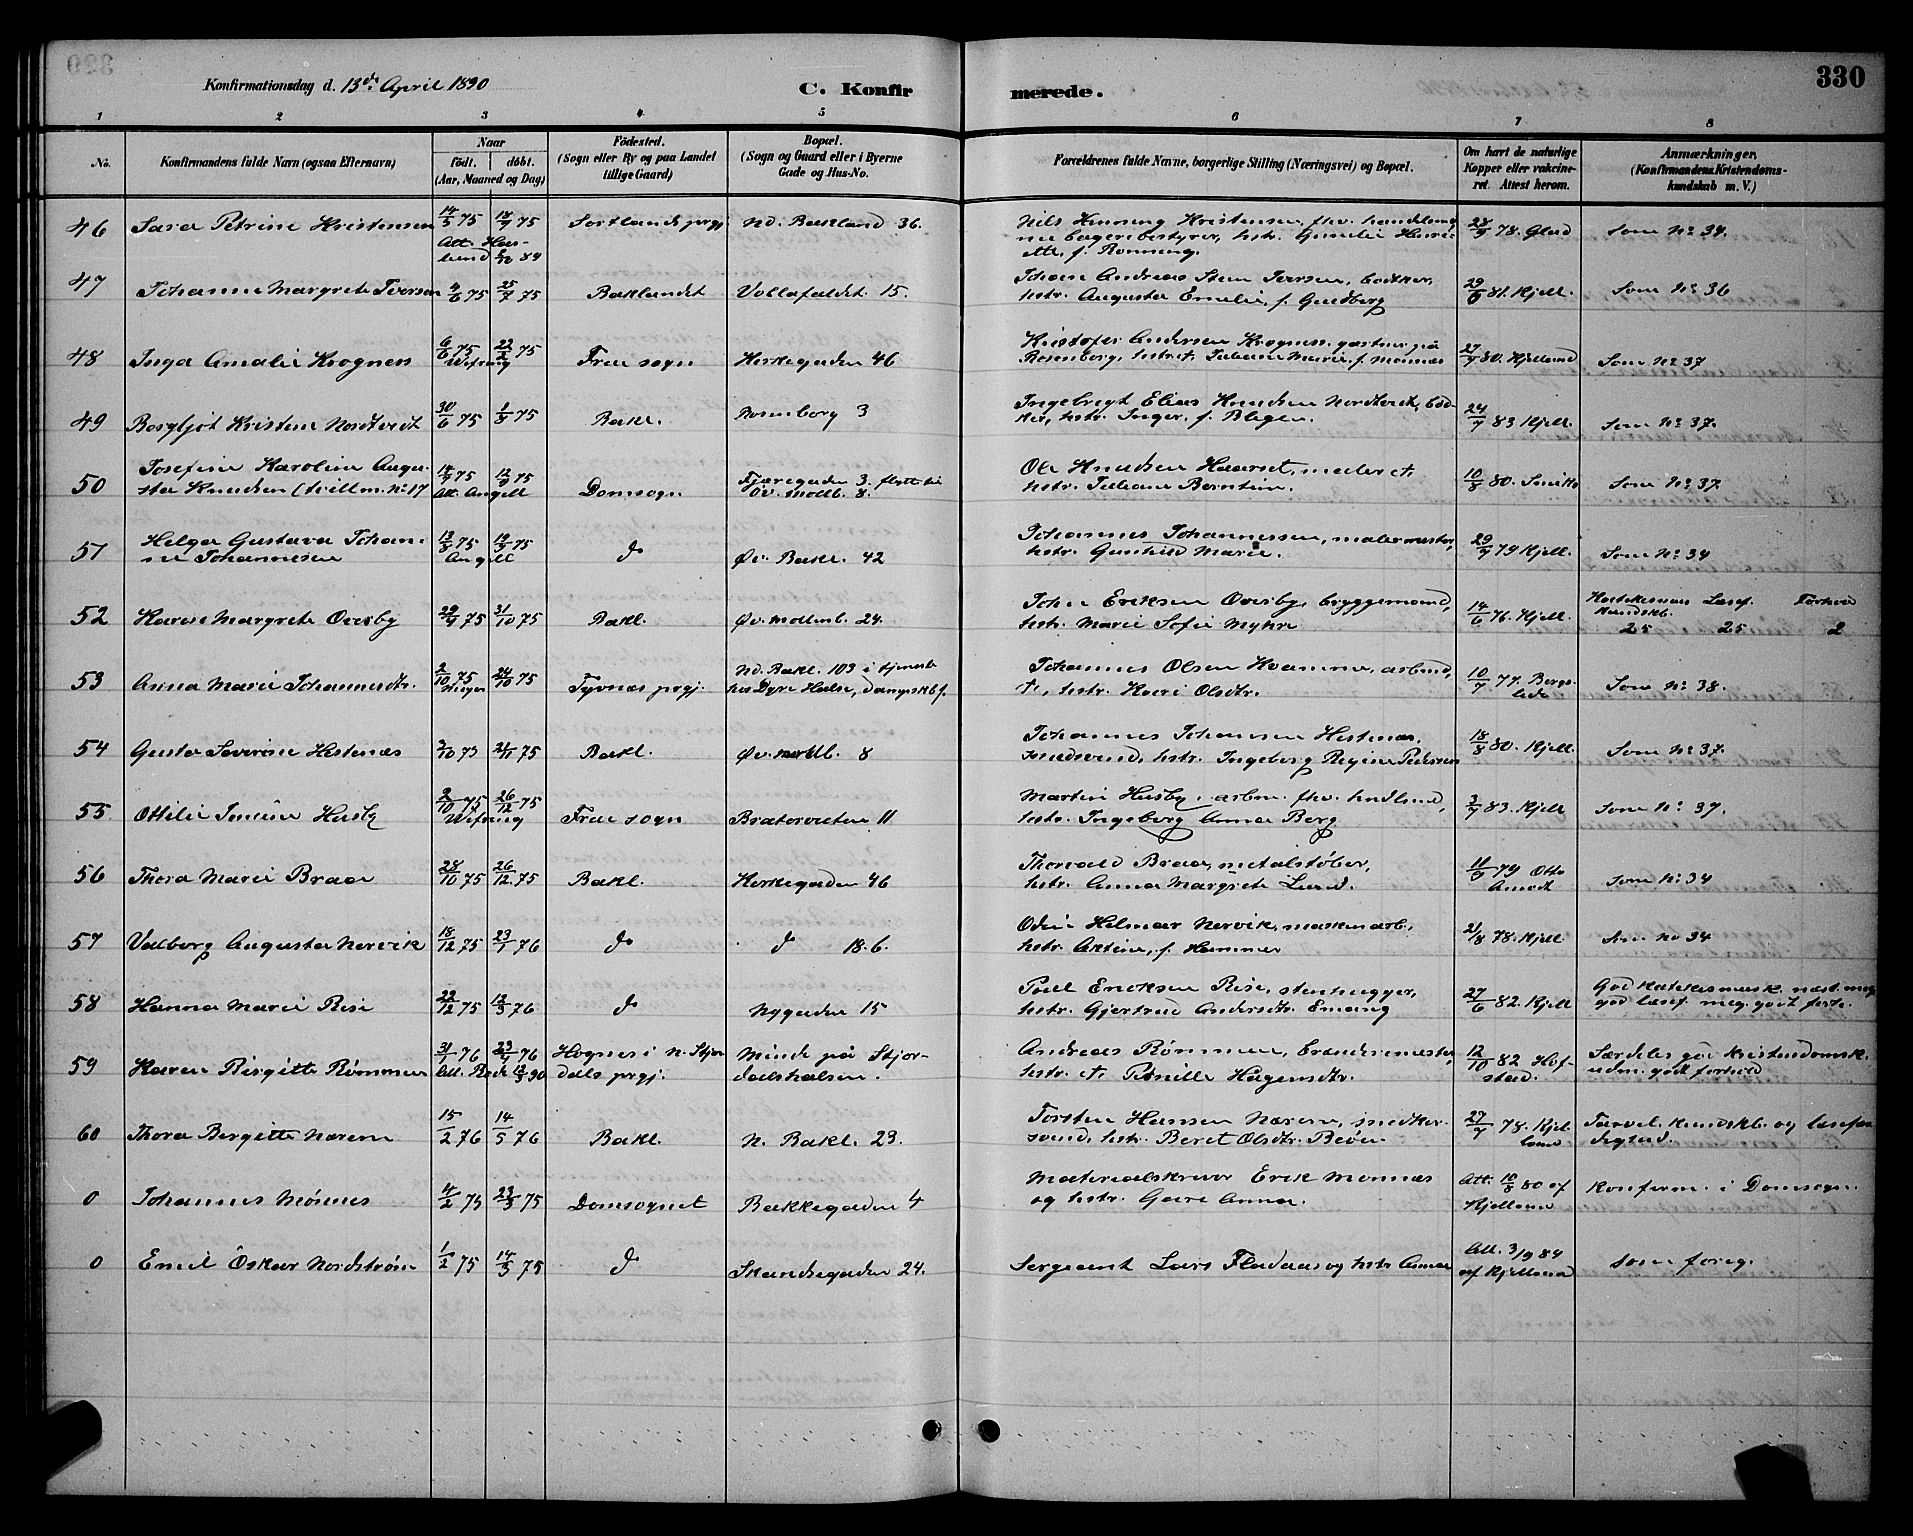 330
Konfirmationsdag d. 13de April 1890
C. Konfirmerede.
1 2 3 4 5 6 7 8
No.
Konfirmandens fulde Navn (ogsaa Efternavn)
Naar
født. døbt.
(Aar, Maaned og Dag)
Fødested.
(Sogn eller By og paa Landet
tillige Gaard)
Bopæl.
(Sogn og Gaard eller i Byerne
Gade og Hus-No.
Forældrenes fulde Navne, borgerlige Stilling (Næringsvei) og Bopæl.
Om havt de naturlige
Kopper eller vakcine-
ret. Attest herom.
Anmærkninger.
(Konfirmandens Kristendoms-
kundskab m. V.)
46 Sara Petrine Kristensen 14/5 75 18/7 75 Sortlands prgj. Nd. Bakland 36. Nils Henning Kristensen, fhv.
bageribestyrer, hstr.
f. Rønning. 78. Som No 34.
47 Johanne Margrete Iversen 4/6 75 25/7 75 Baklandet Vollafaldet 15. Johan Andreas Stein Iversen, bødker,
hstr. Augusta Emelie, f. Gudberg 29/6 81. Kjell. Som No 36
48 Inga Amalie Krognes 6/6 75 22/2 75 Frue sogn Kirkegaden 46 Kristofer Andersen Krognes, gartner på
Rosenborg, hstr. et. Juliane Marie, f. Monnæs 27/7 80. Kjelland Som No 37
49 Borgljot Kristine Nordtvedt 30/6 75 1/8 75 Bakl. Rosenborg 3 Ingebrigt Elias Knudsen Nordtvedt, bød-
ker, hstr. Inger, f. Blegen. 24/7 83 Kjell. Som No 37.
50 Josefine Karoline Augu-
sta Knudsen (tvill m. No 17 14/7 75 12/9 75
Att. Angell Domsogn Fjæregaden 3. flytte til
Øv. Mollb. 8. Ole Knudsen Haarset, maler et
hstr. Juliane Berntine. 10/8 80. Som No 37.
51 Helga Gustava Johan-
ne Johannesen 13/8 75 19/9 75
Angell do Øv. Bakl. 42 Johannes Johannessen, malermester,
hstr. Gunhild Marie. 29/7 79 Kjell. Som No 34
52 Karen Margrete Overby 29/9 75 31/10 75 Bakl. Øv. Mollenb. 24. John Eriksen Overby, bryggemand,
hstr. Marie Sofie Myhre 14/6 76. Kjell. Kundskb. Læsef. Forhold
25 25 2
53 Anna Marie Johannesdtr. 2/10 75 24/10 75 prgj. Nd. Bakl. 103 i tjeneste
hos Dyre Halse, dampskbf. Johannes Olsen Hvamme, arbmd,
et, hstr. Kari Olsdtr. 10/7 77. Som No 38.
54 Gusta Severine Hestnæs 3/10 75 21/11 75 Bakl. Øv. Mollb. 8 Johannes Johansen Hestnæs,
smedsvend, hstr. Ingeborg Regine Pedersen 18/8 80. Kjell. Som No 37.
55 Ottilie Husby 2/10 75 26/12 75 Frue sogn Bratørveiten 11 Martin Husby, arbm. fhv.
hstr. Ingeborg Anna Berg 3/7 83. Kjell Som No 37.
56 Thora Marie Braa 28/10 75 26/12 75 Bakl. Kirkegaden 46 Thorvald Braa, metalstøber,
hstr. Anna Margrete Lund. 11/9 79 Otto Som No 34
57 Valborg Augusta Nervik 18/12 75 23/1 76 do do 18. b. Odin Helmar Nervik, maskinarb,
hstr. Aktine, f. Hammer 21/8 78. Kjell Som No 34
58 Hanna Marie Rise 22/12 75 12/3 76 do Nygaden 15 Paul Ericksen Rise, stenhugger,
hstr. Gjertrud Andersdtr. Emang 27/6 82. Kjell God katekismusk. næst. meg.
god læsef. meg. godt forh.
59 Karen Birgitte Rømmen 31/1 76 23/4 76 Hognes i N. Stjør-
dals prgj. Minde på Stjør-
dalshalsen. Andreas Rømmen, brændermester,
hstr. et Petnille Hågensdtr. 12/10 82 Hof-
stad. Særdeles god Kristendomsk.
udm. godt forhold
60 Thora Bergitte Nærem 15/2 76 14/5 76 Bakl. N. Bakl. 23. Torsten Hansen Nærem, snedker-
svend, hstr. Beret Olsdtr. Beøen 27/7 78. Kjel-
land Tarvel. kundskb. og læsefær-
dighed.
0 Johannes Mönnes 4/2 75 23/3 75 Domsognet Bakkegaden 4 Materialskriver Erik Monnæs
og hstr. Anna. Att. 18/8 80 af
Kjelland Konfirm. i Domsogn.
0 Emil Oskar Nordstrøm 1/2 75 14/3 75 do Skandsegaden 24. Sergeant Lars Fladaas og hstr Anna Att. 3/9 84
af Kjelland Som foreg.